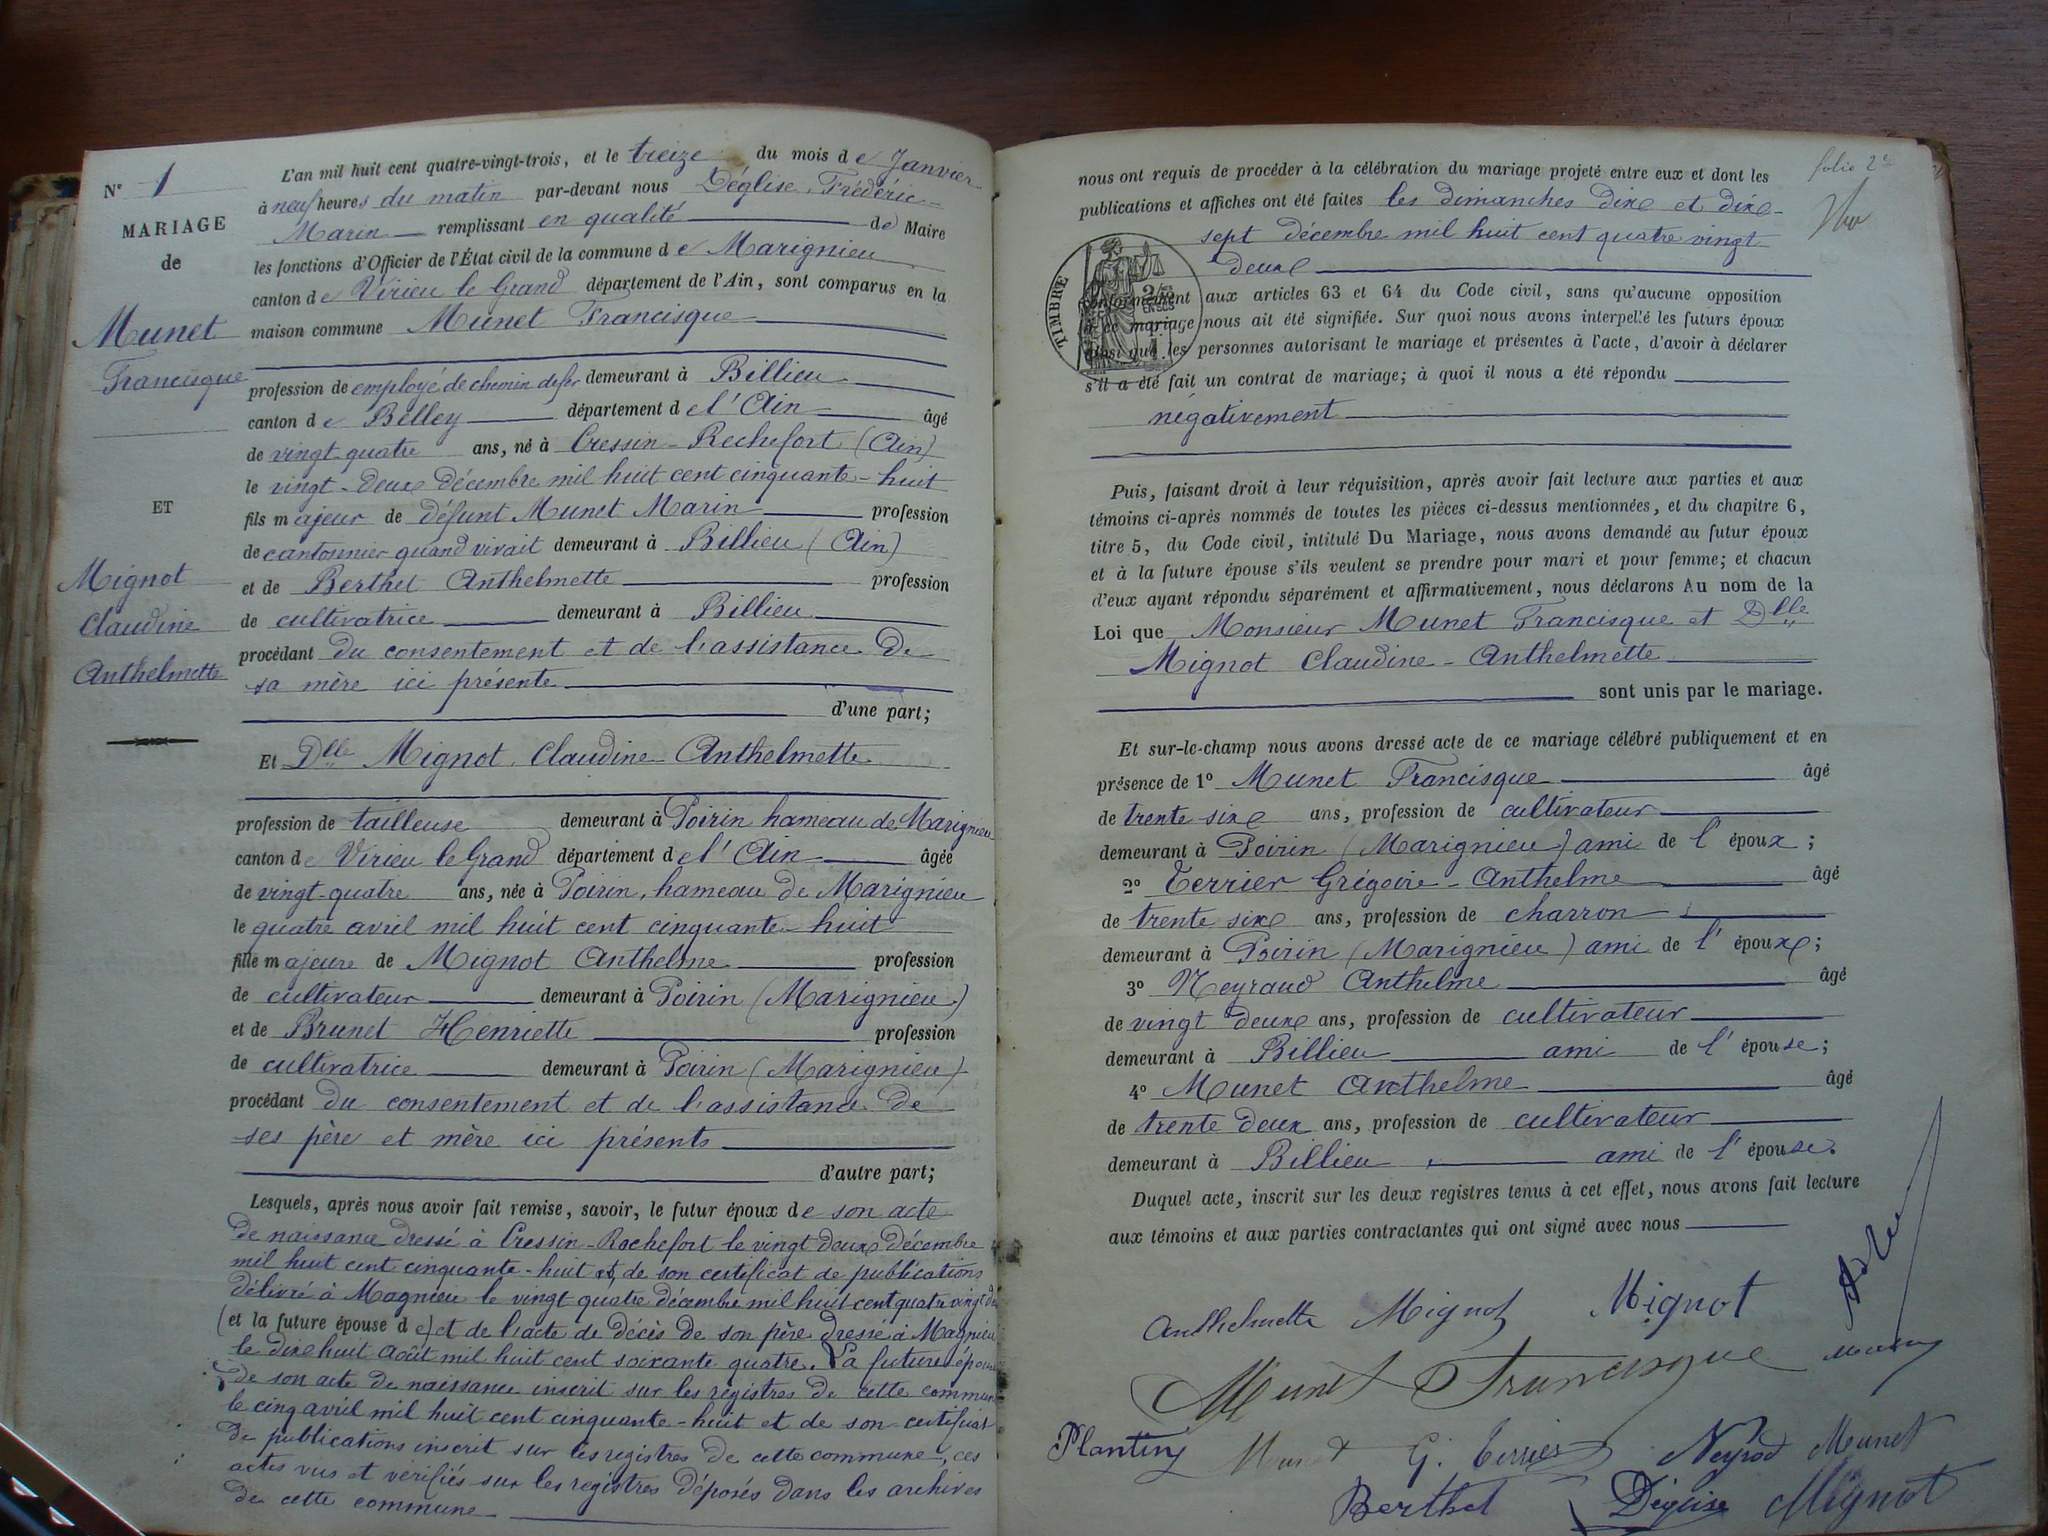 N° 1
MARIAGE
de
Munet
Francisque
ET
Mignot
Claudine
Anthelmette
L'an mil huit cent quatre-vingt-trois, et le treize du mois de Janvier
à neuf heures du matin par-devant nous Déglise, Frédéric-
Marin remplissant en qualité de Maire
les fonctions d'Officier de l'État civil de la commune de Marignieu
canton de Virieu le Grand département de l'Ain, sont comparus en la
maison commune Munet Francisque
profession de employé de chemin de fer demeurant à Billieu
canton de Belley département de l'Ain âgé
de vingt quatre ans, né à Cressin-Rochefort (Ain)
le vingt-deux décembre mil huit cent cinquante-huit
fils majeur de défunt Munet Marin profession
de cantonnier quand vivait demeurant à Billieu (Ain)
et de Berthet Anthelmette profession
de cultivatrice demeurant à Billieu
procédant du consentement et de l'assistance de
sa mère ici présente
d'une part;
Et Dlle Mignot Claudine-Anthelmette
profession de tailleuse demeurant à Poirin hameau de Marignieu
canton de Virieu le Grand département de l'Ain âgée
de vingt-quatre ans, née à Poirin, hameau de Marignieu
le quatre avril mil huit cent cinquante-huit
fille majeure de Mignot Anthelme profession
de cultivateur demeurant à Poirin (Marignieu)
et de Brunet Henriette profession
de cultivatrice demeurant à Poirin (Marignieu)
procédant du consentement et de l'assistance de
ses père et mère ici présents
d'autre part;
Lesquels, après nous avoir fait remise, savoir, le futur époux de son acte
de naissance dressé à Cressin-Rochefort le vingt deux décembre
mil huit cent cinquante-huit et, de son certificat de publications
délivré à Magnieu le vingt quatre décembre mil huit cent quatre vingt deux
(et la future épouse de) et de l'acte de décès de son père dressé à Magnieu
le dix huit août mil huit cent soixante quatre. La future épouse
de son acte de naissance inscrit sur les régistres de cette commune
le cinq avril mil huit cent cinquante-huit et de son certificat
de publications inscrit sur les registres de cette commune, ces
actes vus et vérifiés sur les registres déposés dans les archives
de cette commune
folio 2e
nous ont requis de procéder à la célébration du mariage projeté entre eux et dont les
publications et affiches ont été faites les dimanches dix et dix-
sept décembre mil huit cent quatre vingt
deux
TIMBRE
conformément aux articles 63 et 64 du Code civil, sans qu'aucune opposition
à ce mariage nous ait été signifiée. Sur quoi nous avons interpellé les futurs époux
ainsi que les personnes autorisant le mariage et présentes à l'acte, d'avoir à déclarer
s'il a été fait un contrat de mariage; à quoi il nous a été répondu
négativement
Puis, faisant droit à leur réquisition, après avoir fait lecture aux parties et aux
témoins ci-après nommés de toutes les pièces ci-dessus mentionnées, et du chapitre 6,
titre 5, du Code civil, intitulé Du Mariage, nous avons demandé au futur époux
et à la future épouse s'ils veulent se prendre pour mari et pour femme; et chacun
d'eux ayant répondu séparément et affirmativement, nous déclarons Au nom de la
Loi que Monsieur Munet Francisque et Dlle
Mignot Claudine-Anthelmette
sont unis par le mariage.
Et sur-le-champ nous avons dressé acte de ce mariage célébré publiquement et en
présence de 1° Munet Francisque âgé
de trente six ans, profession de cultivateur
demeurant à Poirin (Marignieu) ami de l'époux;
2° Terrier Grégoire-Anthelme âgé
de trente six ans, profession de charron
demeurant à Poirin (Marignieu) ami de l'époux;
3° Neyraud Anthelme âgé
de vingt deux ans, profession de cultivateur
demeurant à Billieu ami de l'épouse;
4° Munet Anthelme âgé
de trente deux ans, profession de cultivateur
demeurant à Billieu ami de l'épouse.
Duquel acte, inscrit sur les deux registres tenus à cet effet, nous avons fait lecture
aux témoins et aux parties contractantes qui ont signé avec nous
Anthelmette Mignot Mignot
Munet Francisque
Plantin Munet G. Terrier Neyrod Munet
Berthet Déglise Mignot